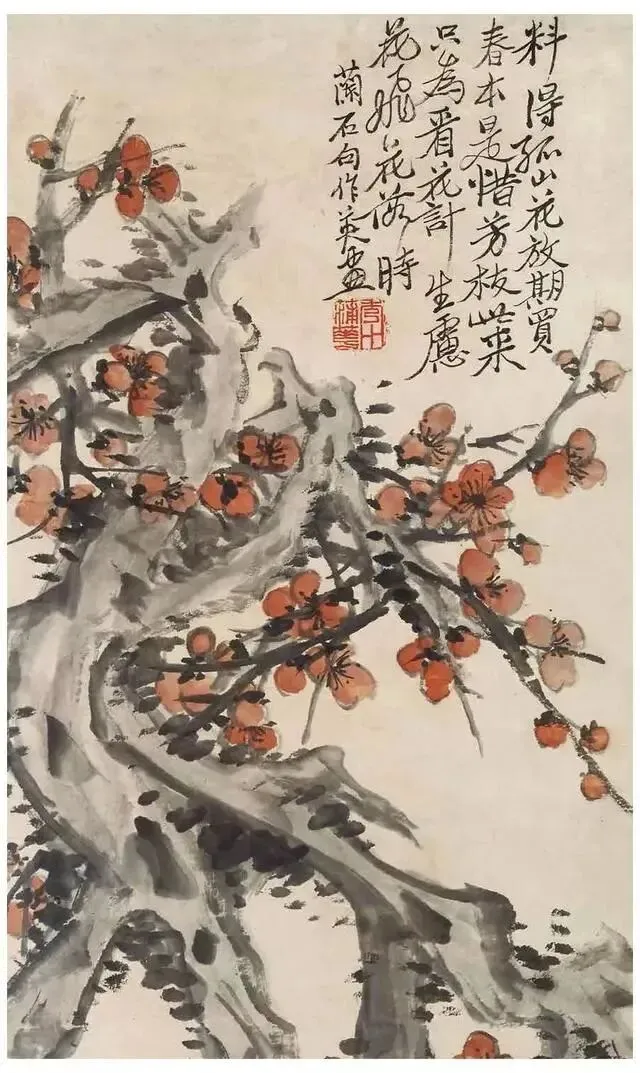 料得孤山花放期買
春本是惜芳枝此来
只為看花計生慮
花飛花落時
蘭石句作英畫